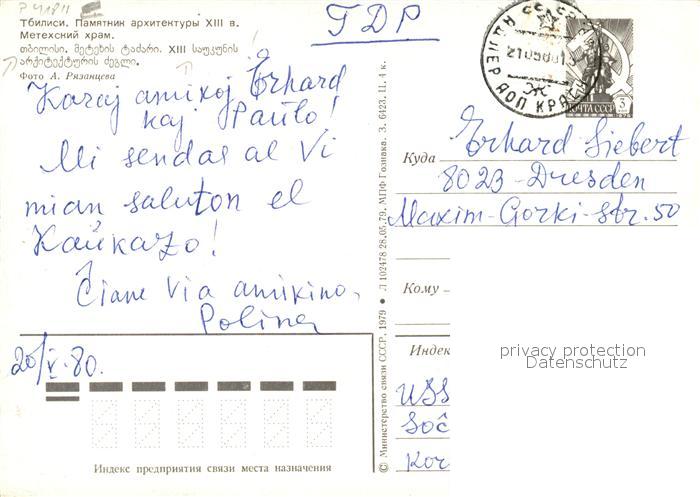 P 41811
Тбилиси. Памятник архитектуры XIII в.
Метехский храм.
თბილისი. მეტეხის ტაძარი. XIII საუკუნის
არქიტექტურის ძეგლი.
Фото А. Рязанцева
Karaj amikoj Erhard
kaj Paŭlo!
Mi sendas al Vi
mian saluton el
Kaŭkazo!
Ĉiam Via amikino,
Polina
20/V.80.
Индекс предприятия связи места назначения
© Министерство связи СССР, 1979 • Л 102478 28.05.79. МПФ Гознака. З. 6423. Ц. 4 к.
GDR
СССР
АДЛЕР АОП КРАСН
ПОЧТА СССР
3
Куда
Erhard Siebert
8023-Dresden
Maxim-Gorki-Str. 50
Кому
Индек
USS
Soĉ
Kor
privacy protection
Datenschutz